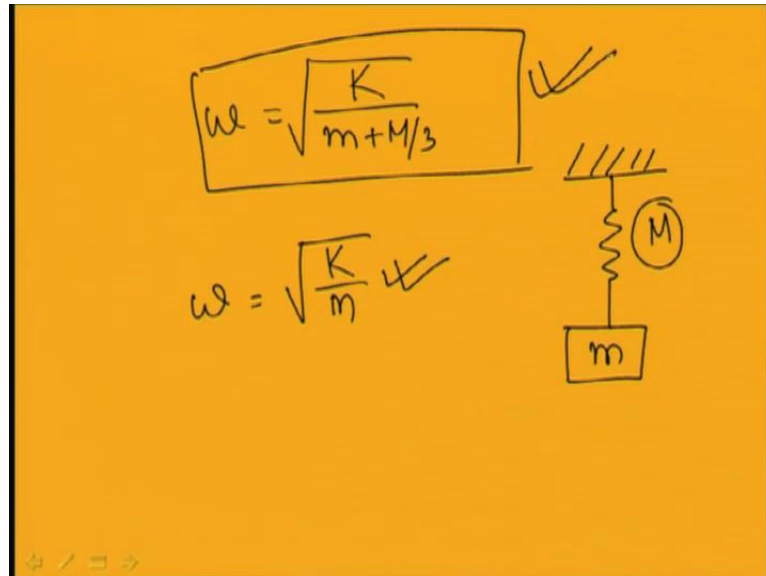 ω = √(K / (m + M/3))
ω = √(K / m)
M
m